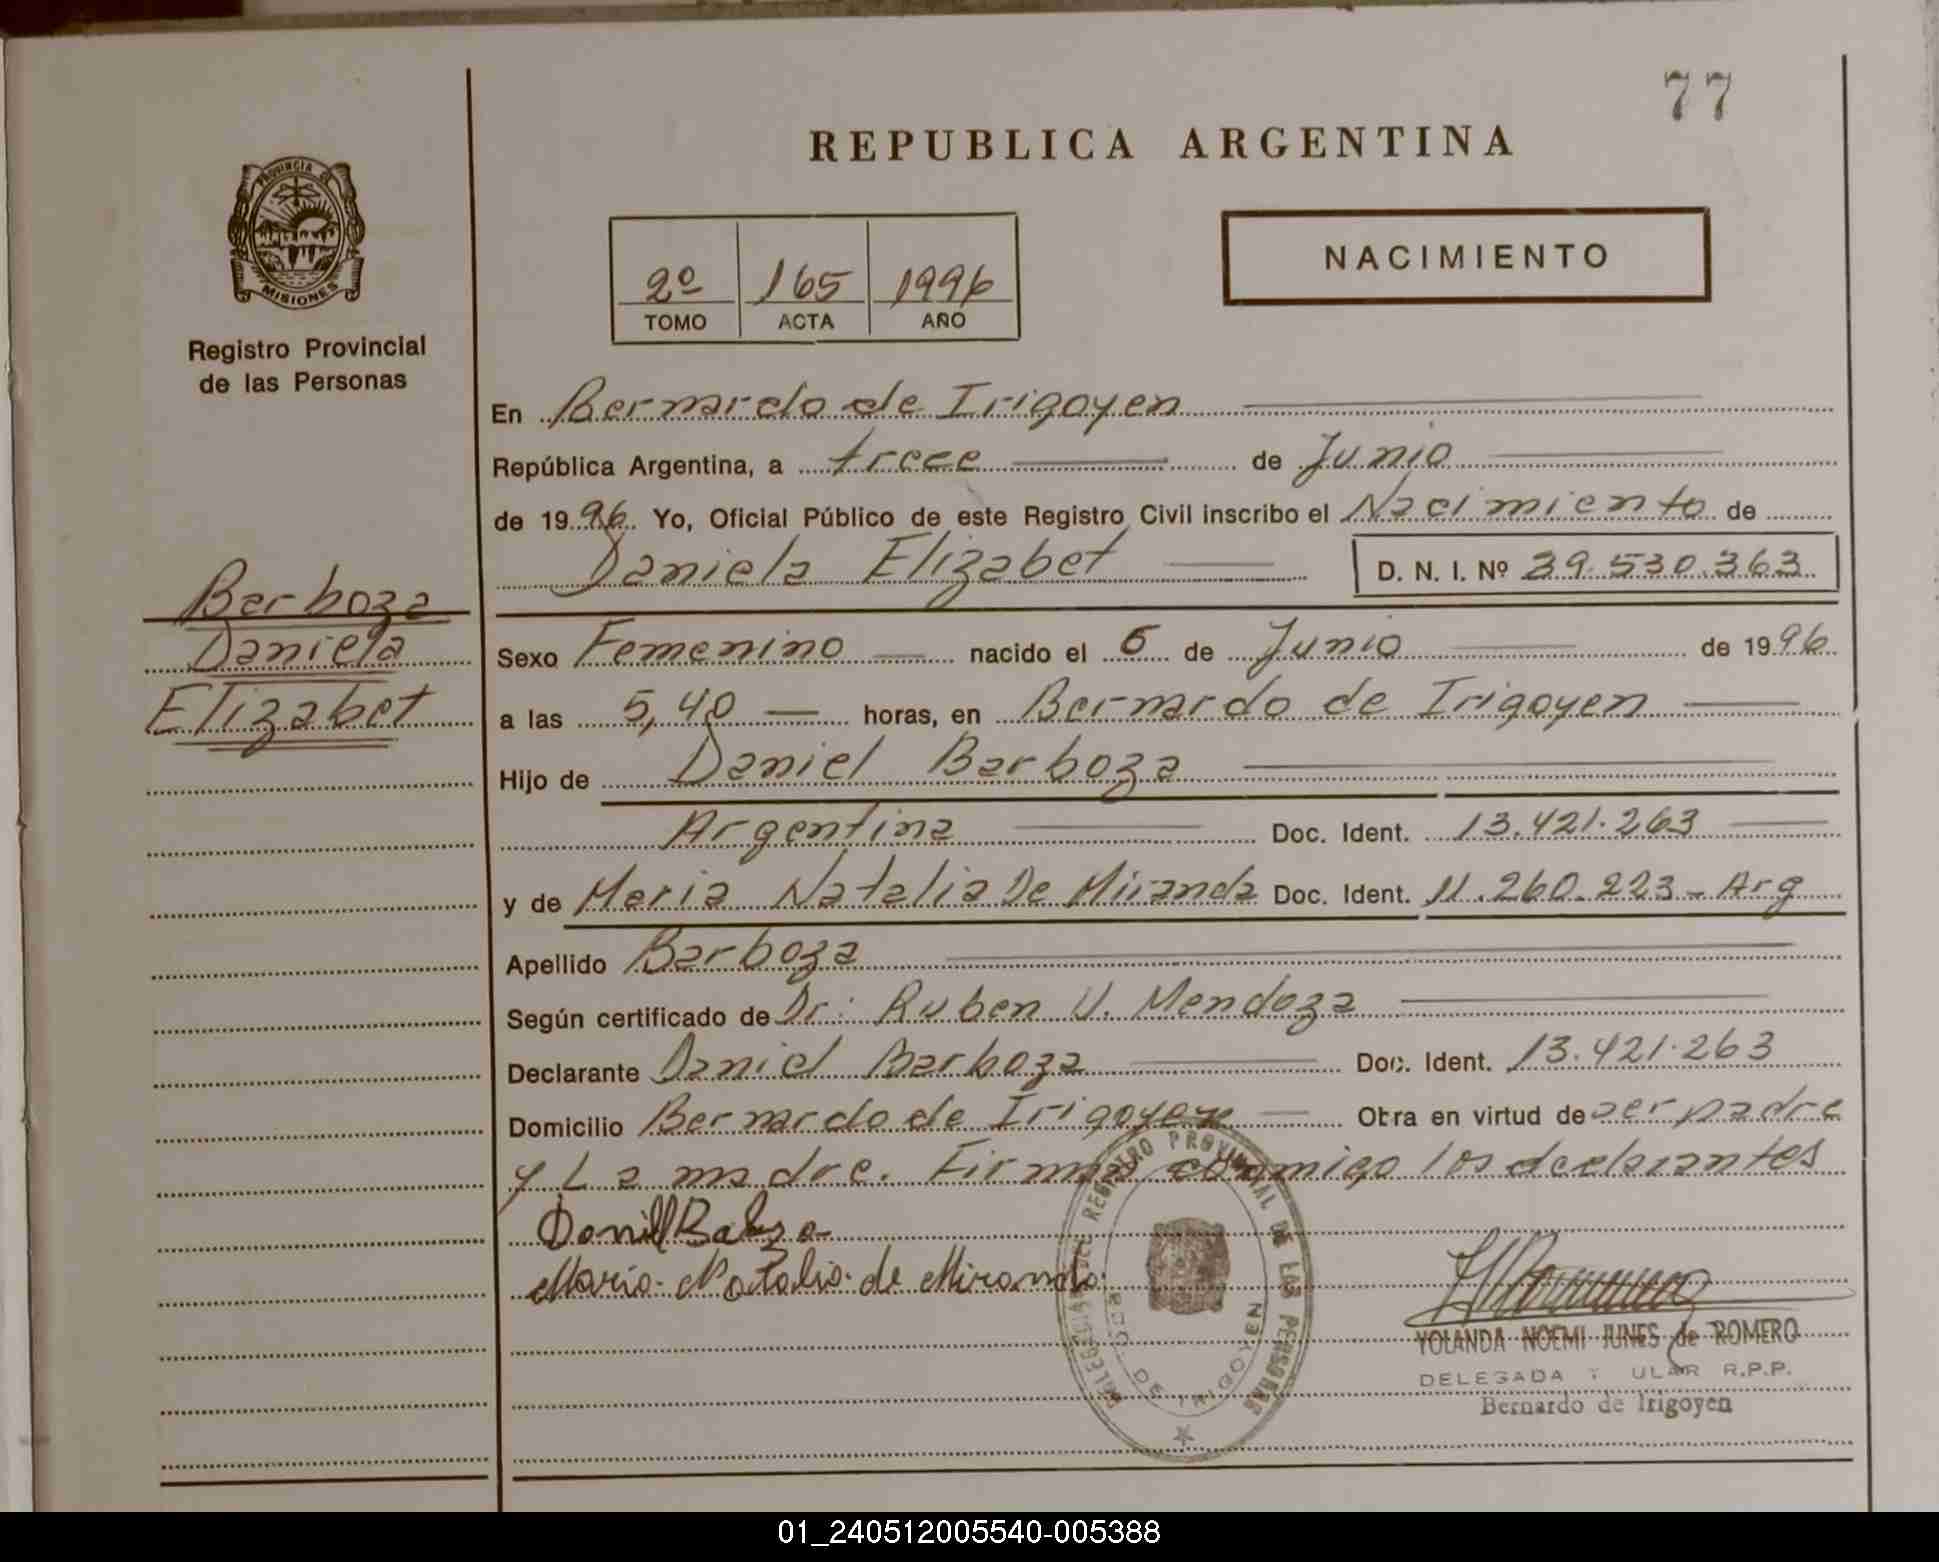 77
REPUBLICA ARGENTINA
PROVINCIA DE
MISIONES
Registro Provincial
de las Personas
2º 165 1996
TOMO ACTA AÑO
NACIMIENTO
En Bernardo de Irigoyen
República Argentina, a trece de Junio
de 1996 Yo, Oficial Público de este Registro Civil inscribo el Nacimiento de
Daniela Elizabet D. N. I. Nº 39.530.363
Barboza
Daniela
Elizabet
Sexo Femenino nacido el 6 de Junio de 1996
a las 5,40 horas, en Bernardo de Irigoyen
Hijo de Daniel Barboza
Argentina Doc. Ident. 13.421.263
y de Maria Natalia De Miranda Doc. Ident. 11.260.223 - Arg
Apellido Barboza
Según certificado de Dr: Ruben U. Mendoza
Declarante Daniel Barboza Doc. Ident. 13.421.263
Domicilio Bernardo de Irigoyen Obra en virtud de ser padre
y La madre. Firman conmigo los declarantes
Maria Natalia de Miranda
REGISTRO PROVINCIAL DE LAS PERSONAS
BDO. DE IRIGOYEN
YOLANDA NOEMI JUNES de ROMERO
DELEGADA ULAR R.P.P.
Bernardo de Irigoyen
01_240512005540-005388